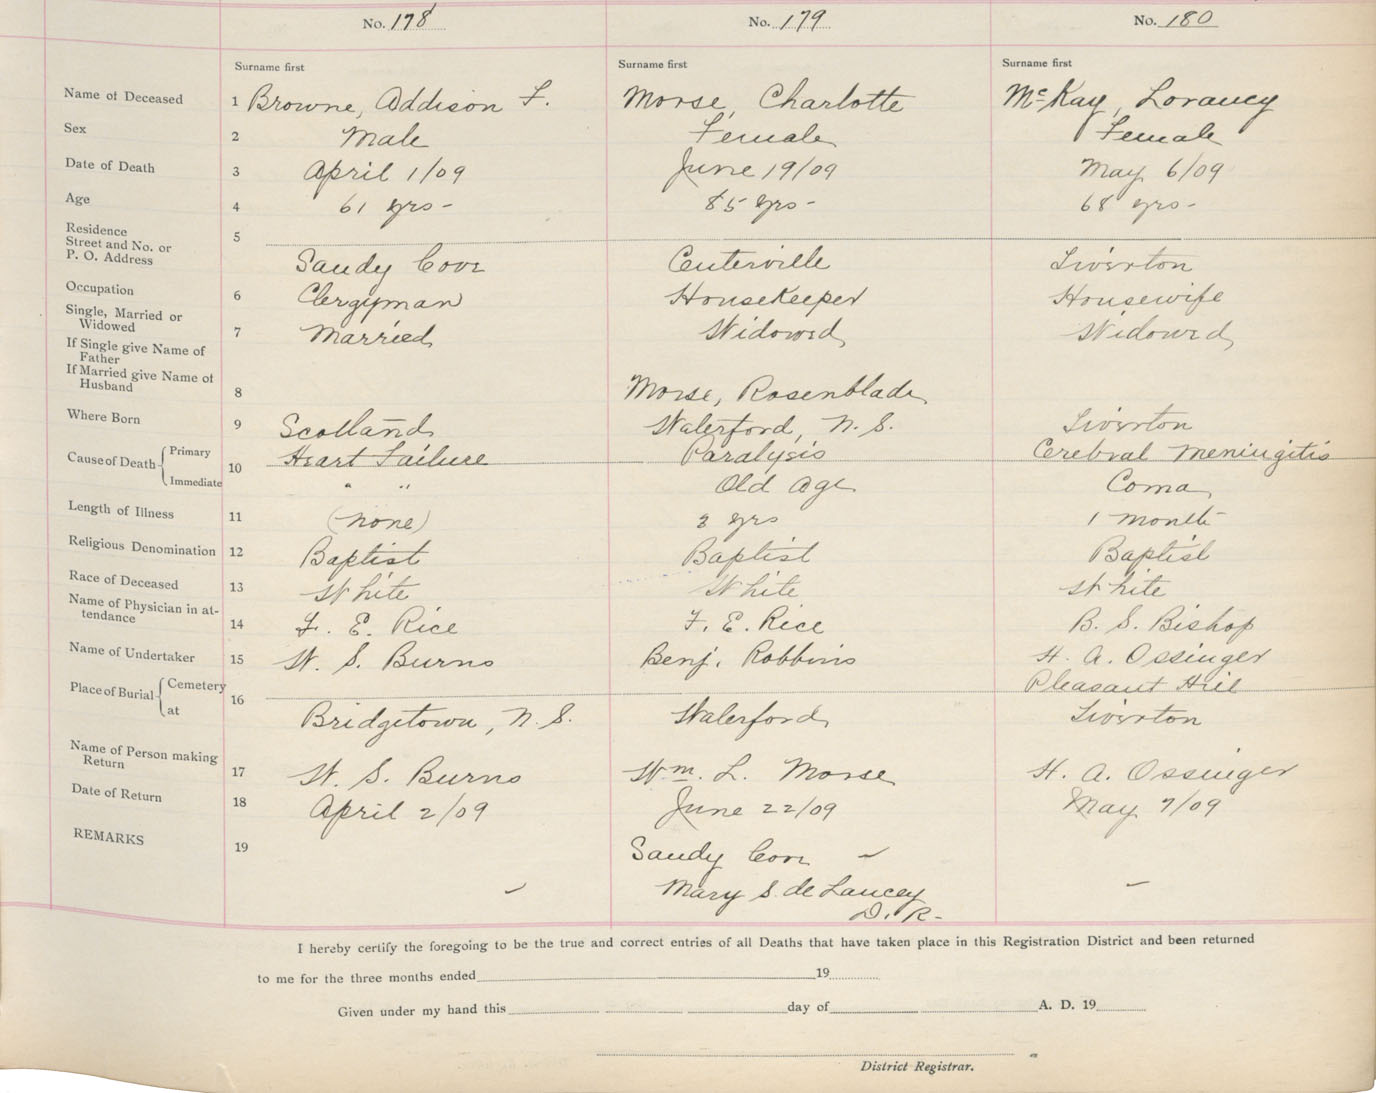 No. 178 No. 179 No. 180
Surname first Surname first Surname first
Name of Deceased 1 Browne, Addison F. Morse, Charlotte McKay, Lorancy
Sex 2 Male Female Female
Date of Death 3 April 1/09 June 19/09 May 6/09
Age 4 61 yrs - 85 yrs - 68 yrs -
Residence
Street and No. or
P. O. Address 5 Sandy Cove Centerville Tiverton
Occupation 6 Clergyman Housekeeper Housewife
Single, Married or
Widowed 7 Married Widowed Widowed
If Single give Name of
Father
If Married give Name of
Husband 8 Morse, Rosenblade
Where Born 9 Scotland Waterford, N. S. Tiverton
Cause of Death Primary 10 Heart Failure Paralysis Cerebral Meningitis
Immediate " " Old Age Coma
Length of Illness 11 (none) 3 yrs 1 month
Religious Denomination 12 Baptist Baptist Baptist
Race of Deceased 13 White White White
Name of Physician in at-
tendance 14 F. E. Rice F. E. Rice B. S. Bishop
Name of Undertaker 15 W. S. Burns Benj. Robbins H. A. Ossinger
Place of Burial Cemetery 16 Pleasant Hill
at Bridgetown, N. S. Waterford Tiverton
Name of Person making
Return 17 W. S. Burns Wm. L. Morse H. A. Ossinger
Date of Return 18 April 2/09 June 22/09 May 7/09
REMARKS 19 Sandy Cove
Mary S. de Lancey
D. R.
I hereby certify the foregoing to be the true and correct entries of all Deaths that have taken place in this Registration District and been returned
to me for the three months ended 19
Given under my hand this day of A. D. 19
District Registrar.